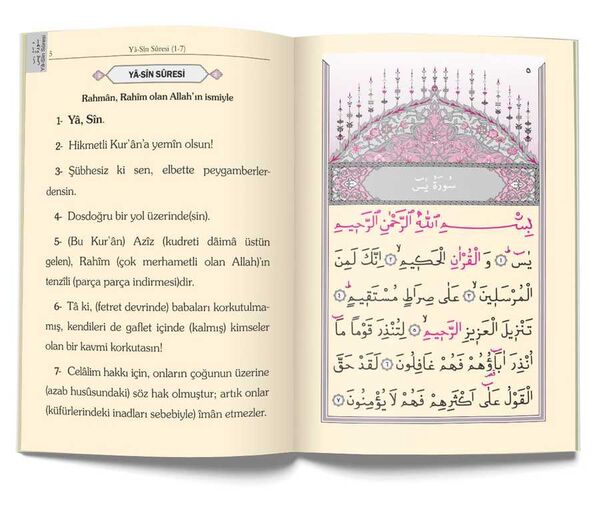 سورة يس
Yâ-Sîn Sûresi
5
Yâ-Sîn Sûresi (1-7)
YÂ-SİN SÛRESİ
Rahmân, Rahîm olan Allah'ın ismiyle
1- Yâ, Sîn.
2- Hikmetli Kur'ân'a yemîn olsun!
3- Şübhesiz ki sen, elbette peygamberler-
densin.
4- Dosdoğru bir yol üzerinde(sin).
5- (Bu Kur'ân) Azîz (kudreti dâimâ üstün
gelen), Rahîm (çok merhametli olan) Allah'ın
tenzîli (parça parça indirmesi)dir.
6- Tâ ki, (fetret devrinde) babaları korkutulma-
mış, kendileri de gaflet içinde (kalmış) kimseler
olan bir kavmi korkutasın!
7- Celâlim hakkı için, onların çoğunun üzerine
(azab husûsundaki) söz hak olmuştur; artık onlar
(küfürlerindeki inadları sebebiyle) îmân etmezler.
٥
سُورَةُ يٰسٓ
بِسْمِ اللّٰهِ الرَّحْمٰنِ الرَّحِيمِ
يٰسٓ ۚ ﴿١﴾ وَالْقُرْاٰنِ الْحَكِيمِ ۙ ﴿٢﴾ اِنَّكَ لَمِنَ
الْمُرْسَلِينَ ۙ ﴿٣﴾ عَلٰى صِرَاطٍ مُسْتَقِيمٍ ۜ ﴿٤﴾
تَنْزِيلَ الْعَزِيزِ الرَّحِيمِ ۙ ﴿٥﴾ لِتُنْذِرَ قَوْمًا مَٓا
اُنْذِرَ اٰبَٓاؤُ۬هُمْ فَهُمْ غَافِلُونَ ﴿٦﴾ لَقَدْ حَقَّ
الْقَوْلُ عَلٰٓى اَكْثَرِهِمْ فَهُمْ لَا يُؤْمِنُونَ ﴿٧﴾